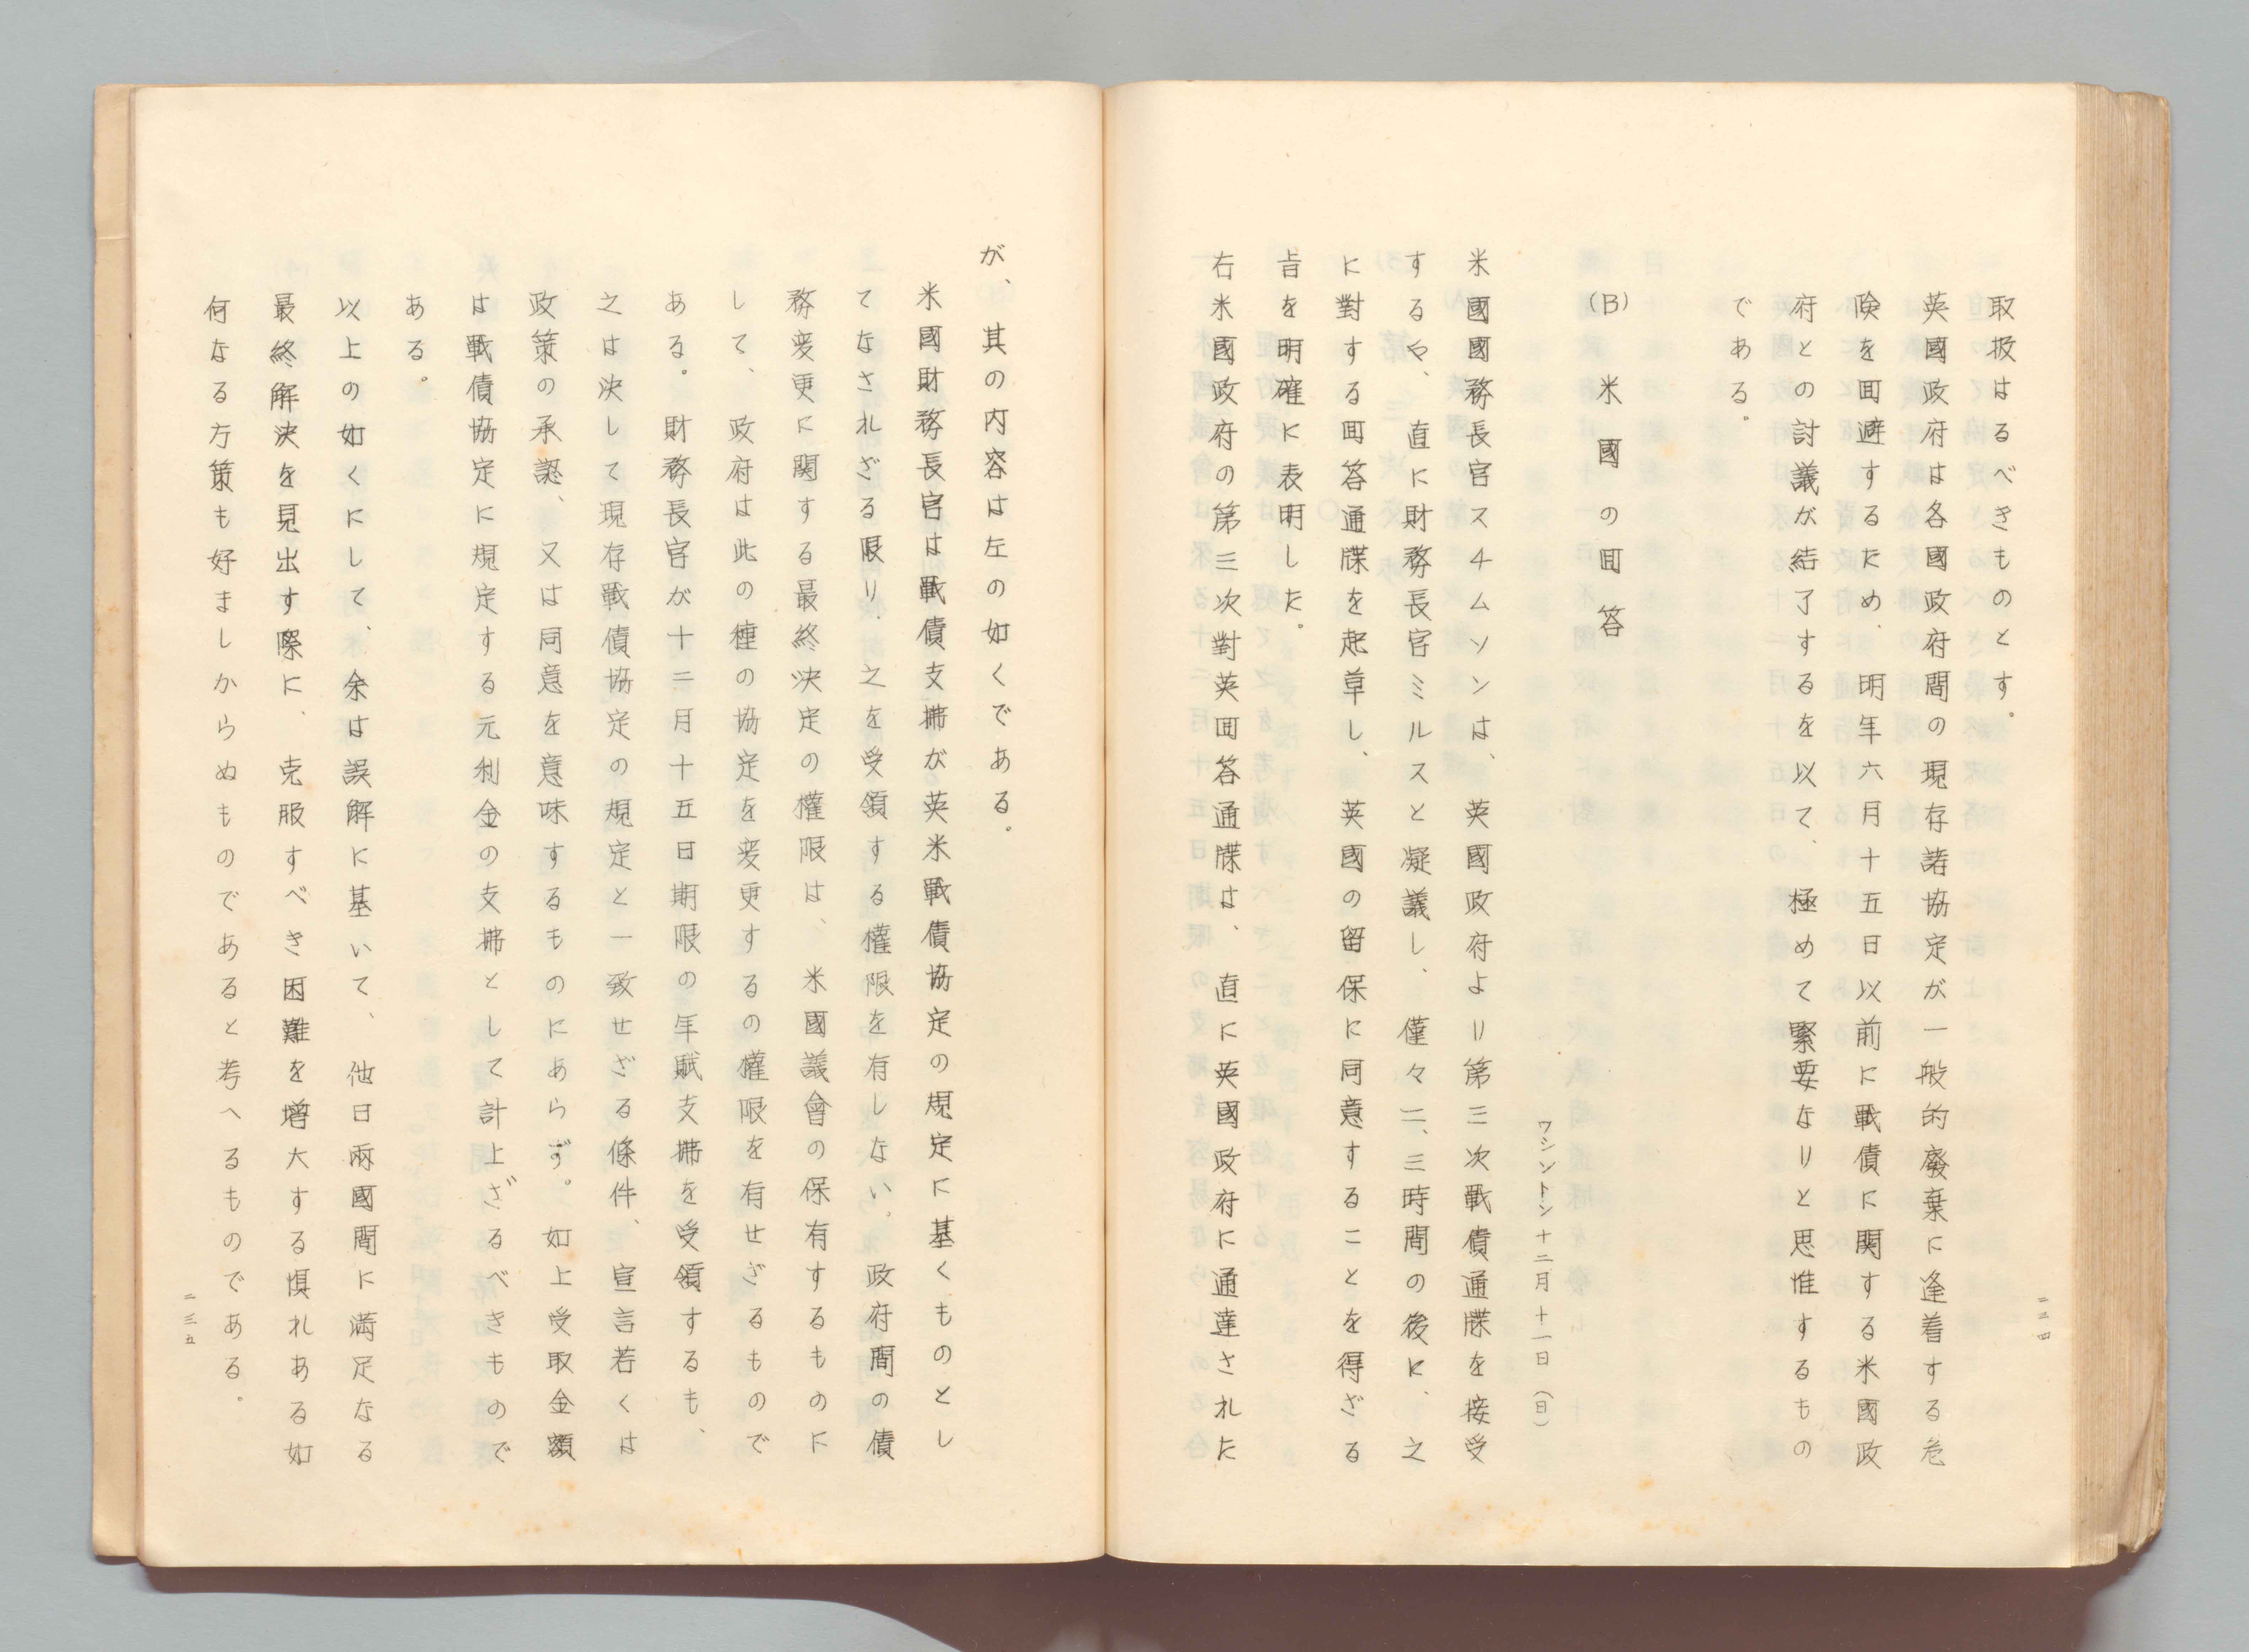 取扱はるべきものとす。
英國政府は各國政府間の現存諸協定が一般的廢棄に逢着する危
険を囬避するにめ、明年六月十五日以前に戰債に関する米國政
府との討議が結了するを以て、極めて緊要なりと思惟するもの
である。
(B) 米國の囬答
ワシントン十二月十一日(日)
米國國務長官スチムソンは、英國政府より第三次戰債通牒を接受
するや、直に財務長官ミルスと凝議し、僅々二、三時間の後に、之
に對する囬答通牒を起草し、英國の留保に同意することを得ざる
旨を明確に表明した。
右米國政府の第三次對英囬答通牒は、直に英國政府に通達された
二三四
が、其の内容は左の如くである。
米國財務長官は戰債支拂が英米戰債協定の規定に基くものとし
てなされざる限り、之を受領する權限を有しない。政府間の債
務変更に関する最終決定の權限は、米國議會の保有するものに
して、政府は此の種の協定を変更するの權限を有せざるもので
ある。財務長官が十二月十五日期限の年賦支拂を受領するも、
之は決して現存戰債協定の規定と一致せざる條件、宣言若くは
政策の承認、又は同意を意味するものにあらず。如上受取金額
は戰債協定に規定する元利金の支拂として計上ざるべきもので
ある。
以上の如くにして、余は誤解に基いて、他日兩國間に満足なる
最終解決を見出す際に、克服すべき困難を増大する惧れある如
何なる方策も好ましからぬものであると考へるものである。
二三五